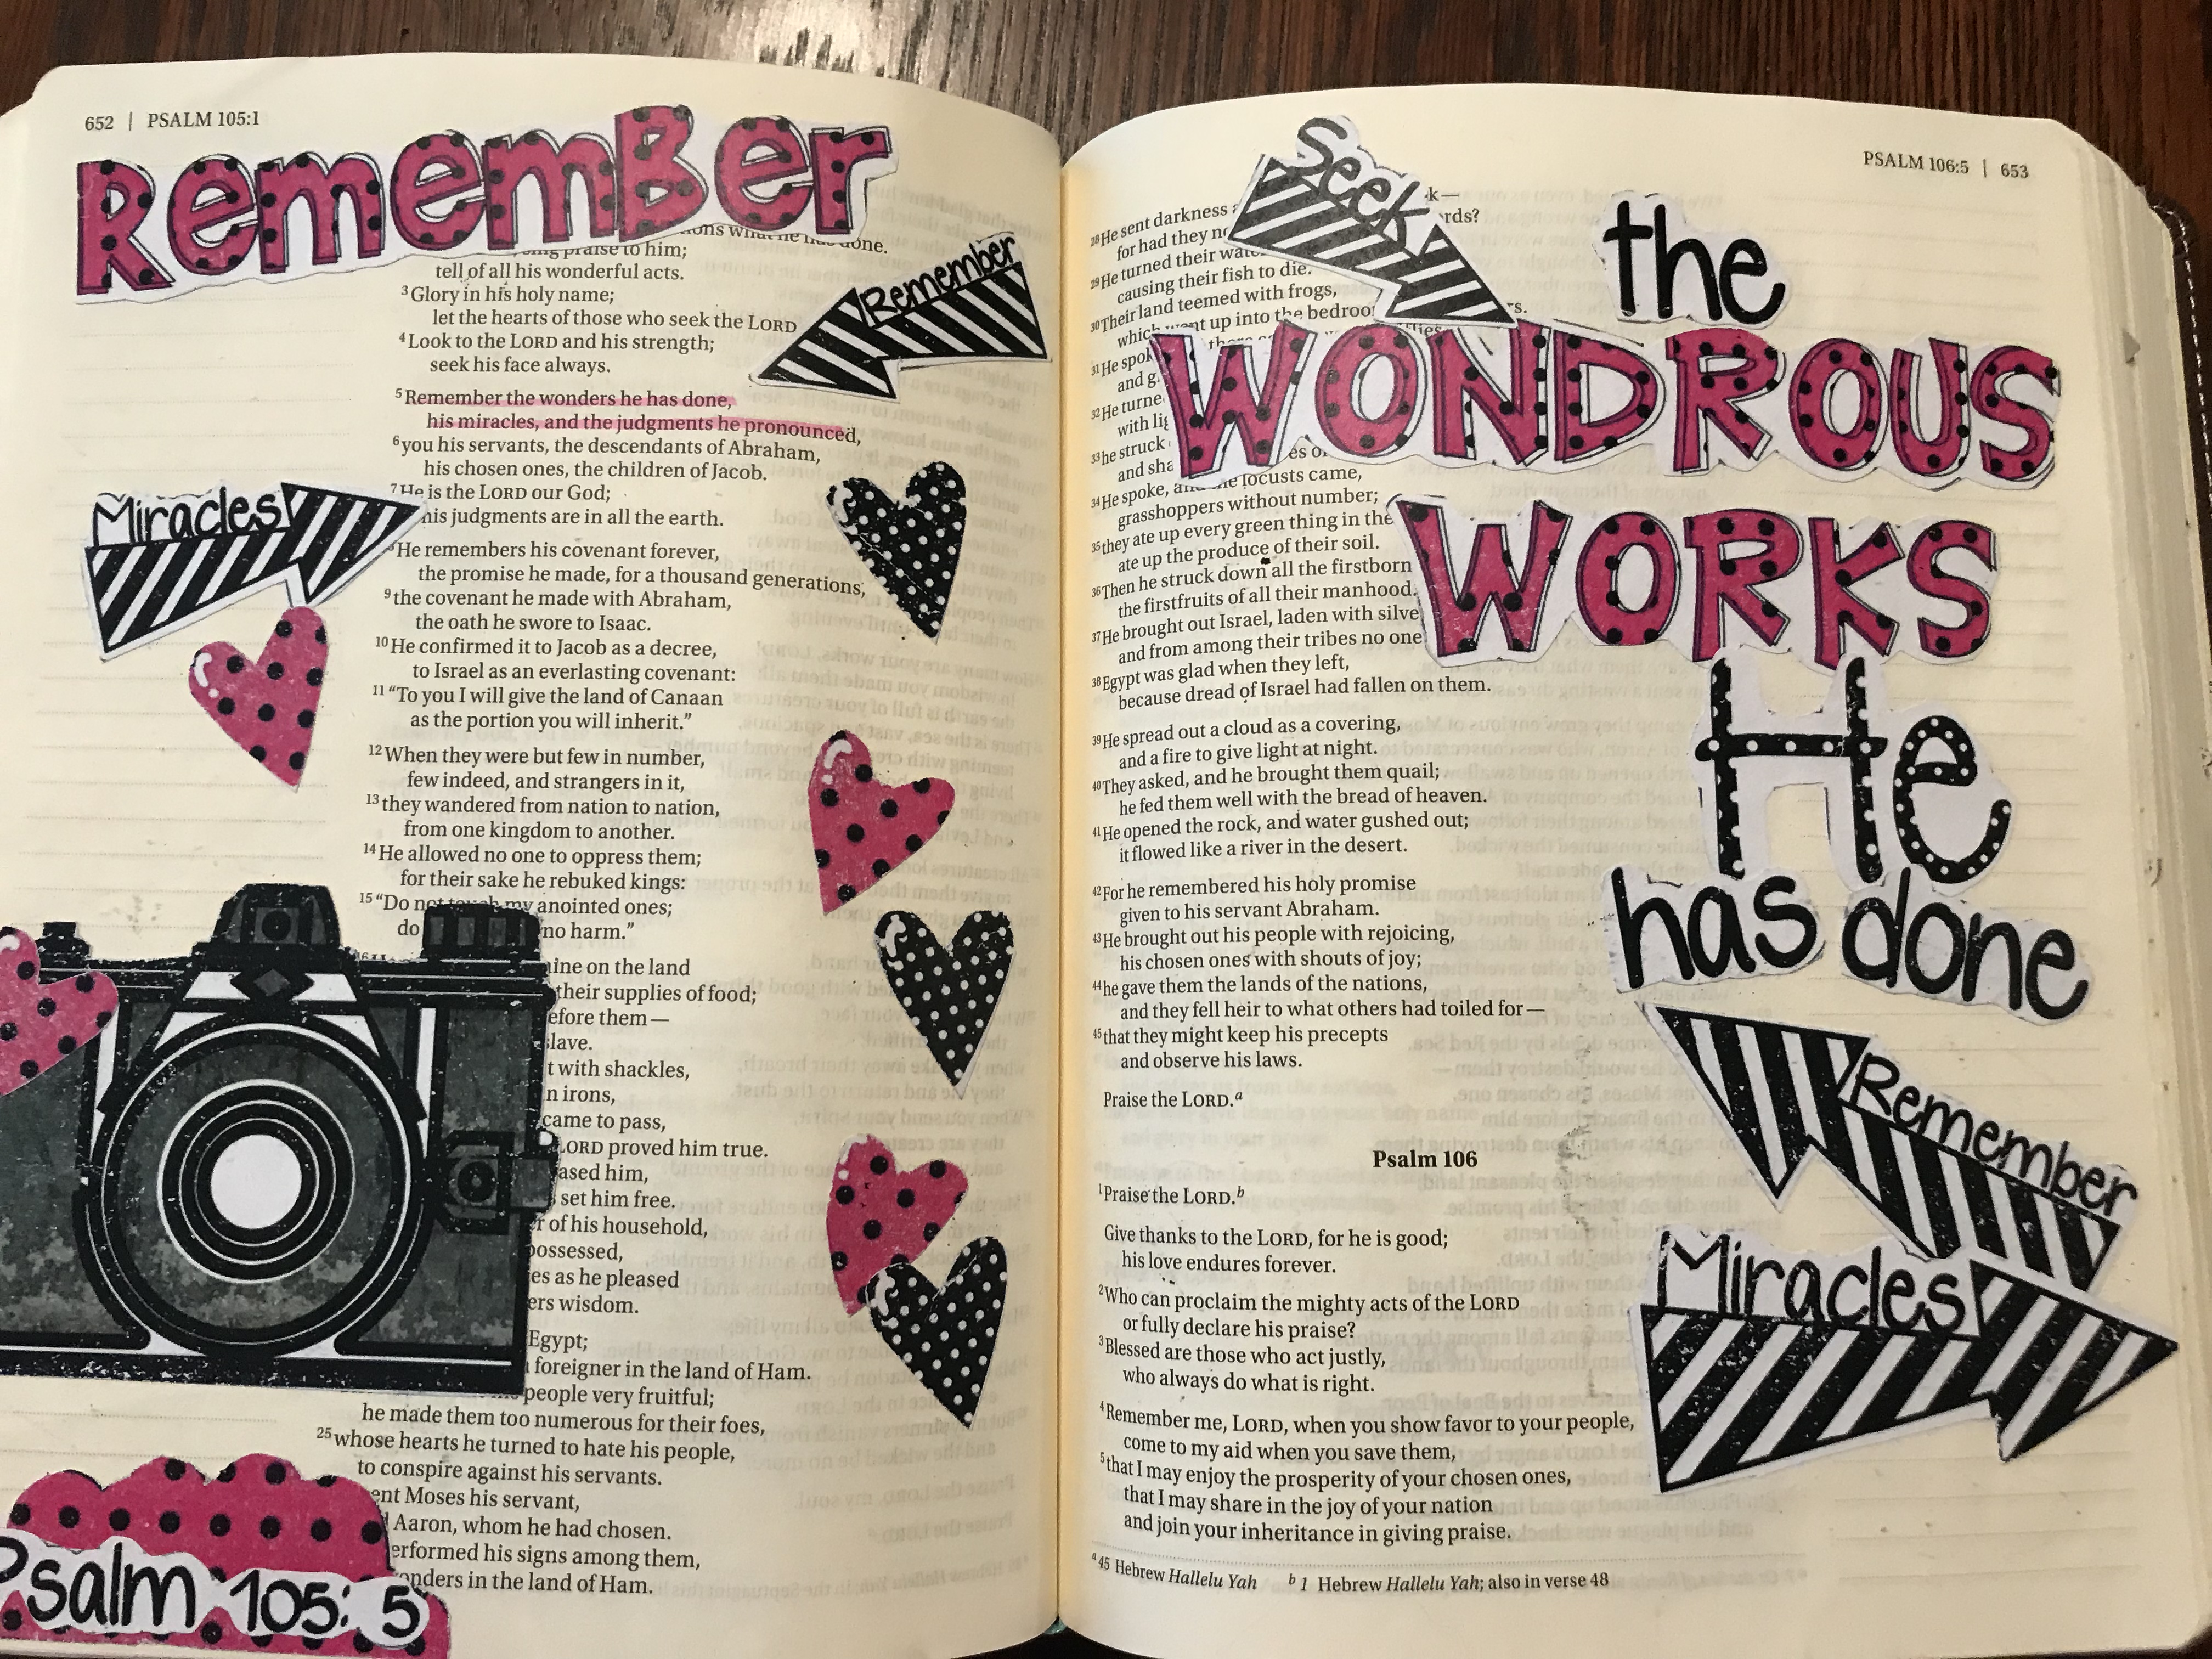 652 | PSALM 105:1
Remember
done.
praise to him;
tell of all his wonderful acts.
3 Glory in his holy name;
let the hearts of those who seek the LORD
4 Look to the LORD and his strength;
seek his face always.
Remember
5 Remember the wonders he has done,
his miracles, and the judgments he pronounced,
6 you his servants, the descendants of Abraham,
his chosen ones, the children of Jacob.
7 He is the LORD our God;
his judgments are in all the earth.
Miracles
He remembers his covenant forever,
the promise he made, for a thousand generations,
9 the covenant he made with Abraham,
the oath he swore to Isaac.
10 He confirmed it to Jacob as a decree,
to Israel as an everlasting covenant:
11 “To you I will give the land of Canaan
as the portion you will inherit.”
12 When they were but few in number,
few indeed, and strangers in it,
13 they wandered from nation to nation,
from one kingdom to another.
14 He allowed no one to oppress them;
for their sake he rebuked kings:
15 “Do my anointed ones;
do no harm.”
on the land
their supplies of food;
them—
with shackles,
irons,
came to pass,
LORD proved him true.
him,
set him free.
of his household,
possessed,
as he pleased
wisdom.
Egypt;
foreigner in the land of Ham.
people very fruitful;
he made them too numerous for their foes,
25 whose hearts he turned to hate his people,
to conspire against his servants.
Moses his servant,
Aaron, whom he had chosen.
his signs among them,
in the land of Ham.
Psalm 105:5
PSALM 106:5 | 653
Seek
28 He sent darkness
for had they
29 He turned their
causing their fish to die.
30 Their land teemed with frogs,
which went up into the
31 He
and
32 He
with
33 he struck
and
34 He spoke, locusts came,
grasshoppers without number;
35 they ate up every green thing in the
ate up the produce of their soil.
36 Then he struck down all the firstborn
the firstfruits of all their manhood.
37 He brought out Israel, laden with
and from among their tribes no one
38 Egypt was glad when they left,
because dread of Israel had fallen on them.
39 He spread out a cloud as a covering,
and a fire to give light at night.
40 They asked, and he brought them quail;
he fed them well with the bread of heaven.
41 He opened the rock, and water gushed out;
it flowed like a river in the desert.
42 For he remembered his holy promise
given to his servant Abraham.
43 He brought out his people with rejoicing,
his chosen ones with shouts of joy;
44 he gave them the lands of the nations,
and they fell heir to what others had toiled for—
45 that they might keep his precepts
and observe his laws.
Praise the LORD.a
Psalm 106
1 Praise the LORD.b
Give thanks to the LORD, for he is good;
his love endures forever.
2 Who can proclaim the mighty acts of the LORD
or fully declare his praise?
3 Blessed are those who act justly,
who always do what is right.
4 Remember me, LORD, when you show favor to your people,
come to my aid when you save them,
5 that I may enjoy the prosperity of your chosen ones,
that I may share in the joy of your nation
and join your inheritance in giving praise.
a 45 Hebrew Hallelu Yah b 1 Hebrew Hallelu Yah; also in verse 48
the
WONDROUS
WORKS
He
has done
Remember
Miracles